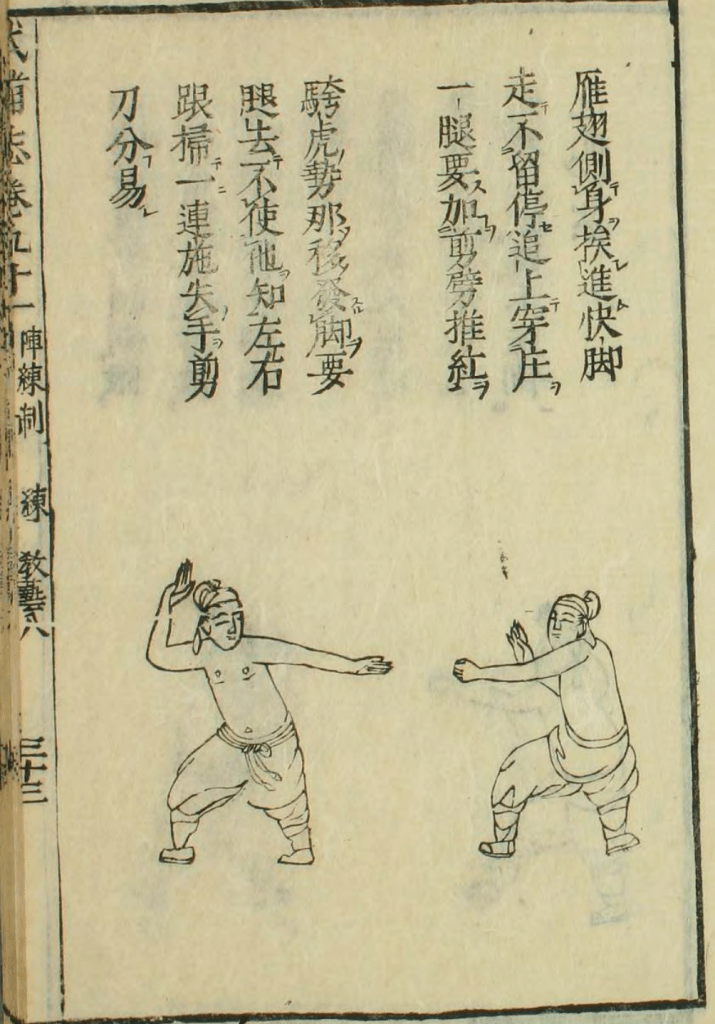 雁翅側身挨進快脚
走不留停追上穿庄
一腿要加剪劈推紅
騎虎勢那移發脚要
腿去不使他知左右
跟掃一連施失手剪
刀分易
武備志卷九十一 陣練制 練 教藝八 三十三